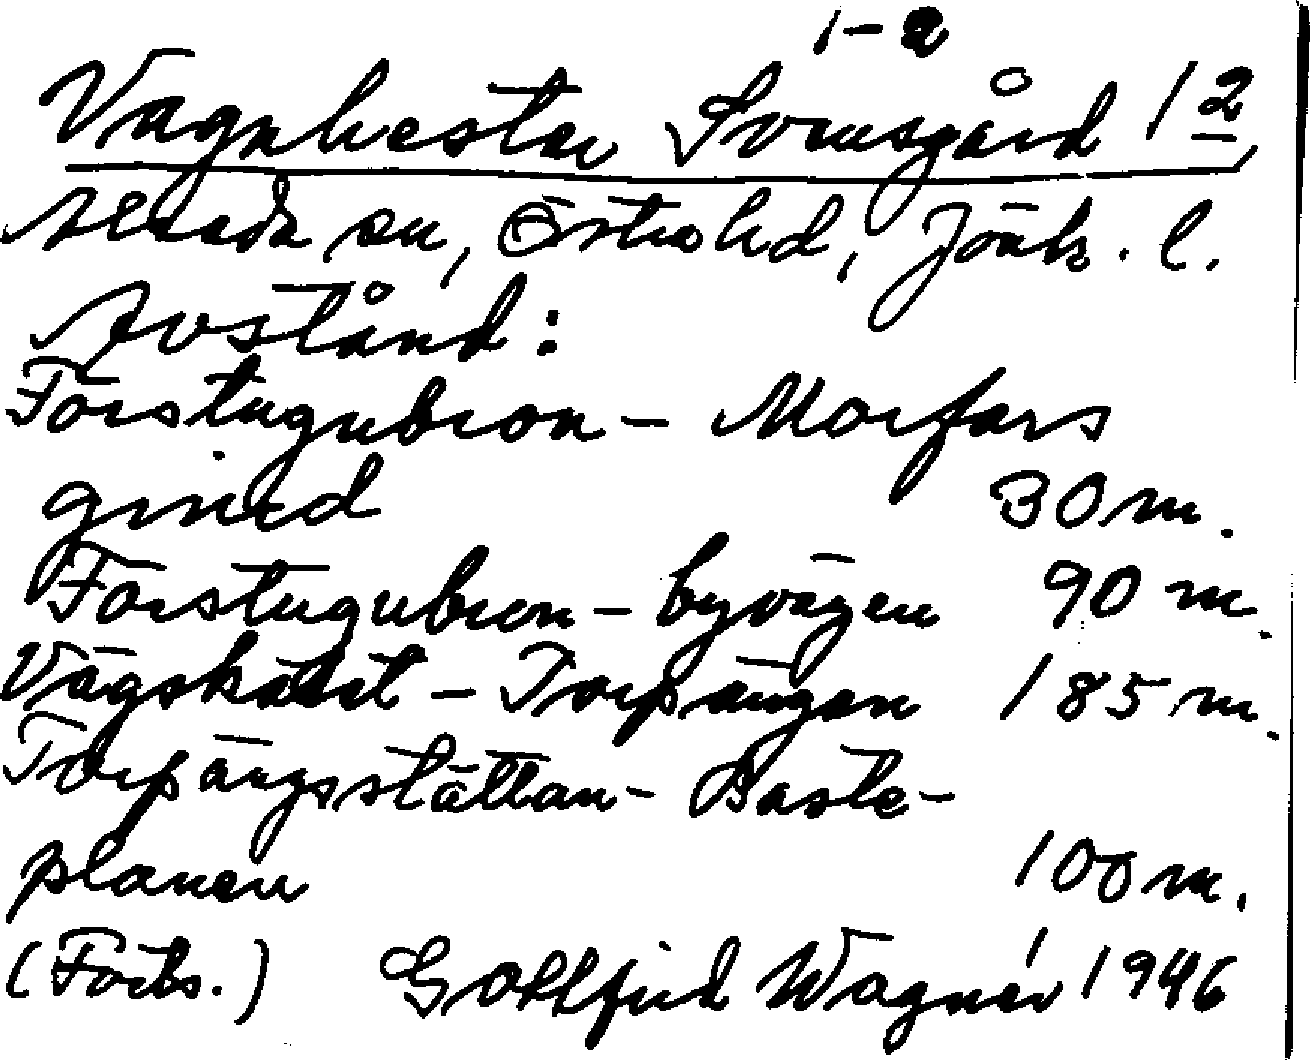 1-2
Vagnhester Svensgård 1 2,
Alseda sn, Östra hd, Jönk. l.
Avstånd:
Förstugubron - Morfars
grind 30 m.
Förstugubron - byvägen 90 m.
Vägskälet - Torpängen 185 m.
Torpängsstättan - Baste-
planen 100 m.
(Forts.) Gottfrid Wagnér 1946